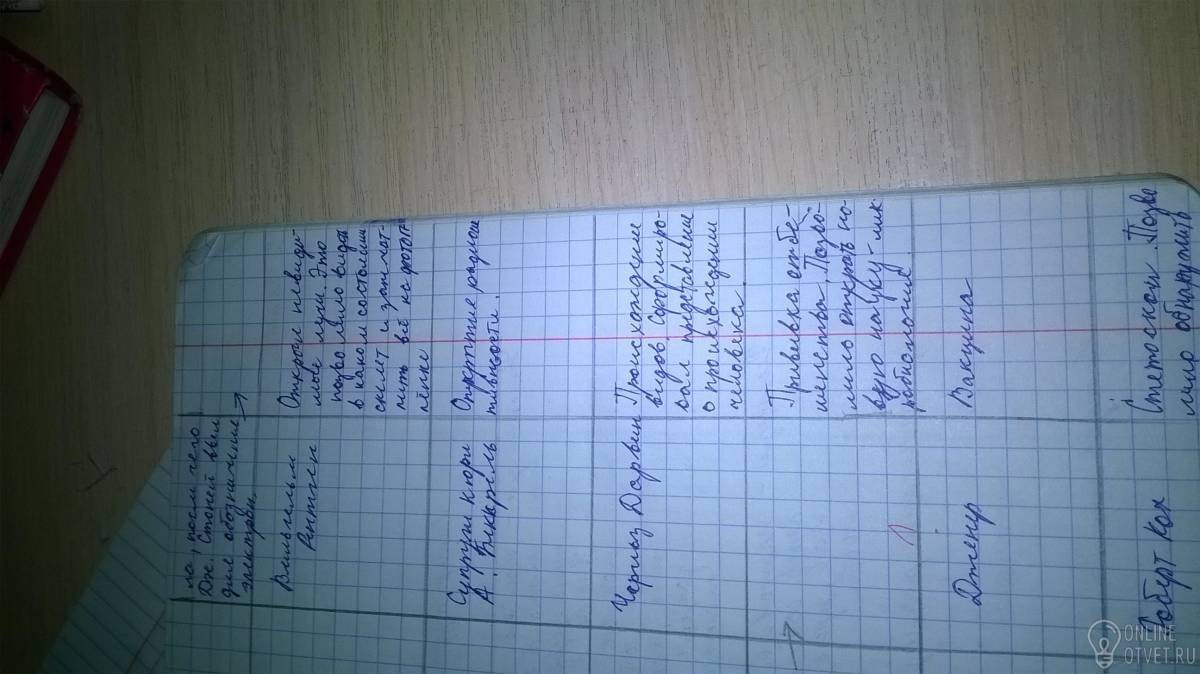 ла, после чего
Дж. Стоней ввел
для обозначение →
электрон
Вильгельм
Рентген
Открыл невиди-
мые лучи. Это
позволило видеть
в каком состоянии
скелет и запечат-
леть всё на фотоп
лёнке
Супруги Кюри
А. Бекырель
Открытие радиоак
тивности.
Чарльз Дарвин
Происхождение
видов. Сформиро-
вал представление
о происхождении
человека.
Прививка от бе-
шенства. Позво-
лило открать но-
вую науку - мик
робиология
Дженер
Вакцина
Роберт Кох
Стетоскоп. Позво
лило обнаружить
ONLINE
OTVET.RU